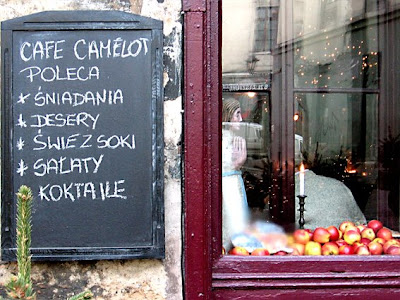 CAFE CAMÉLOT
POLECA
* ŚNIADANIA
* DESERY
* ŚWIEZ SOKI
* SAŁATY
* KOKTAILE